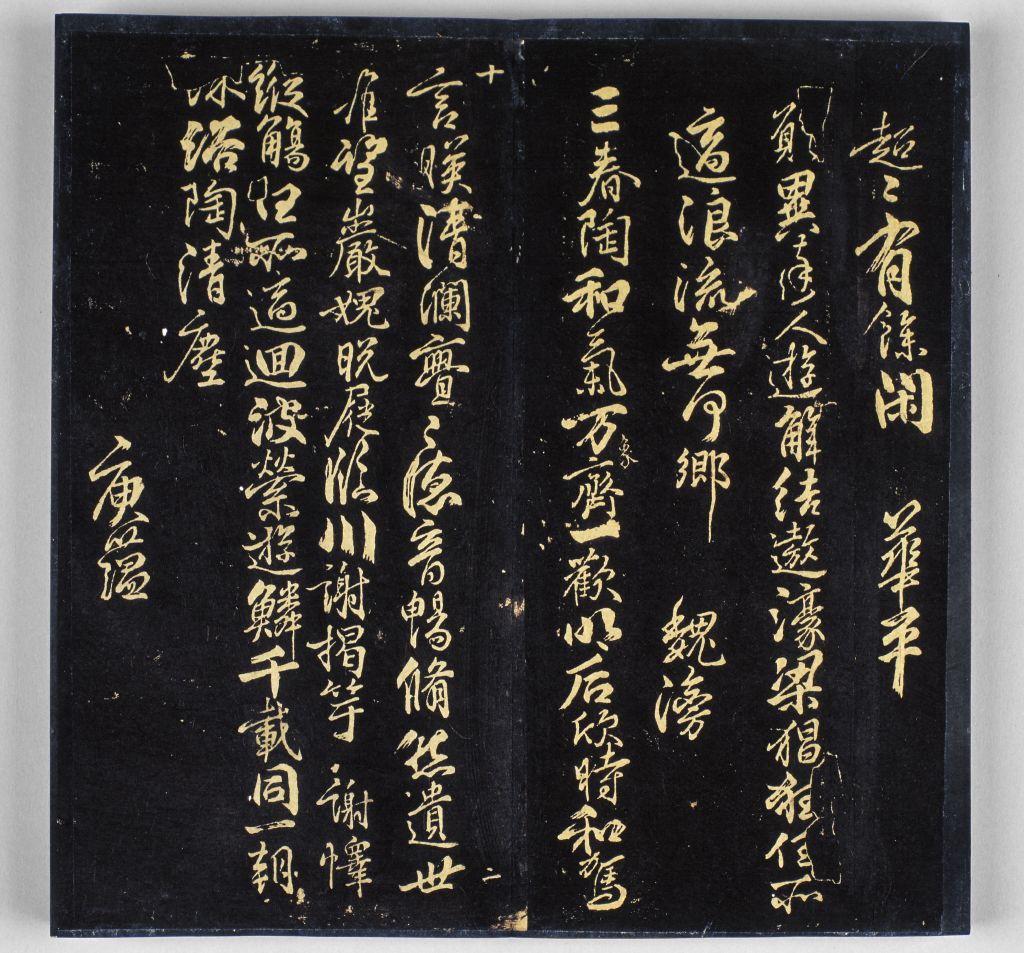 超〻有餘閑 華平
願異達人遊解結遨濠梁猖狂任所
適浪流無何鄉 魏滂
三春陶和氣万象齊一歡明后欣時和駕
十二
言暎清瀾亹〻德音暢脩然遺世
難望巖媿脫屣臨川謝揭竿 謝懌
縱觴任所適迴波縈遊鱗千載同一朝
沐浴陶清塵
庾蘊